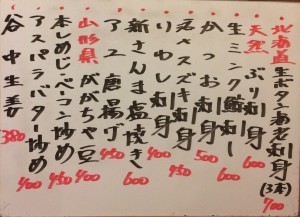 北海道生ボタン海老刺身(3本) 700
天然ぶり刺身 600
生ミンク鯨刺し 600
かつお刺身 500
活〆スズキ刺身 450
いわし刺身 400
新さんま塩焼き 600
アユ唐揚げ 450
山形県だだちゃ豆 400
本しめじベーコン炒め 450
アスパラバター炒め 400
谷中生姜 380